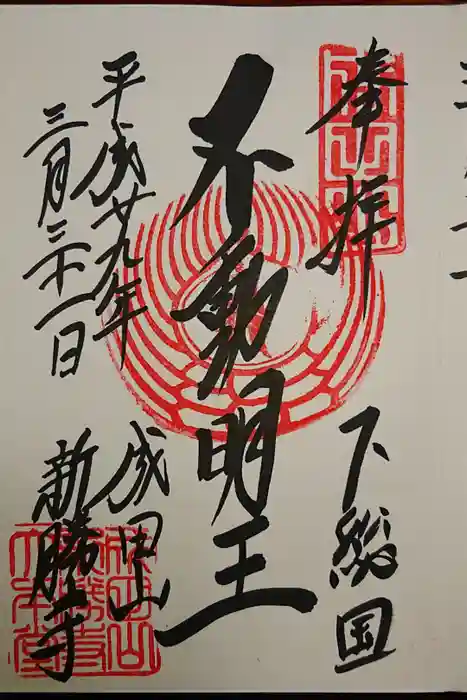 奉拝
下総国
不動明王
平成廿九年
三月三十一日
成田山
新勝寺